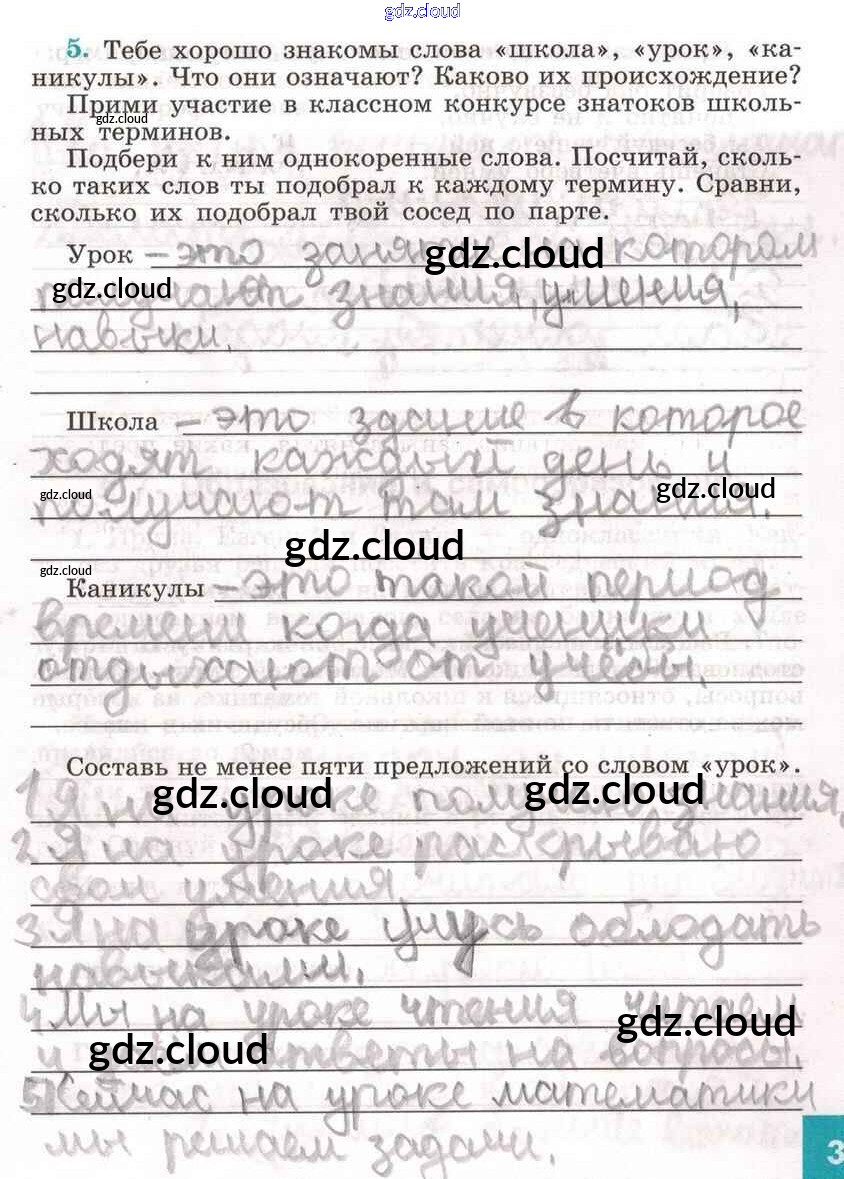 gdz.cloud
5. Тебе хорошо знакомы слова «школа», «урок», «ка-
никулы». Что они означают? Каково их происхождение?
Прими участие в классном конкурсе знатоков школь-
gdz.cloud
ных терминов.
Подбери к ним однокоренные слова. Посчитай, сколь-
ко таких слов ты подобрал к каждому термину. Сравни,
сколько их подобрал твой сосед по парте.
Урок – это занятие на котором
gdz.cloud
получают знания, умения,
gdz.cloud
навыки.
Школа – это здание в которое
ходят каждый день и
gdz.cloud gdz.cloud
получают там знания.
gdz.cloud
gdz.cloud
Каникулы – это такой период
времени когда ученики
отдыхают от учёбы.
Составь не менее пяти предложений со словом «урок».
1. Я на уроке получаю знания.
gdz.cloud gdz.cloud
2. Я на уроке раскрываю
свои умения.
3. Я на уроке учусь обладать
навыками.
4. Мы на уроке чтения читаем
gdz.cloud
и ответы на вопросы.
gdz.cloud
5. Сейчас на уроке математики
мы решаем задачи.
3